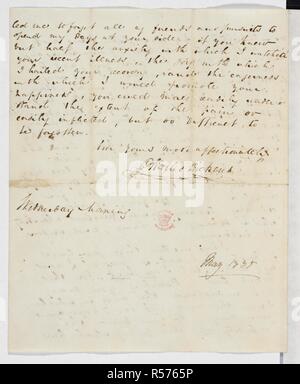 led me to forget all of friends and pursuits to
spend my days at your side - if you knew
but half the anxiety with which I watched
your recent illness, the joy with which
I hailed your recovery, and the eagerness
with which I would promote your
happiness, you could more readily under-
stand the extent of the pain so
easily inflicted, but so difficult to
be forgotten.
Ever yours most affectionately
Charles Dickens
Wednesday Morning
May 1835
alamy
Image ID: R5765P
www.alamy.com